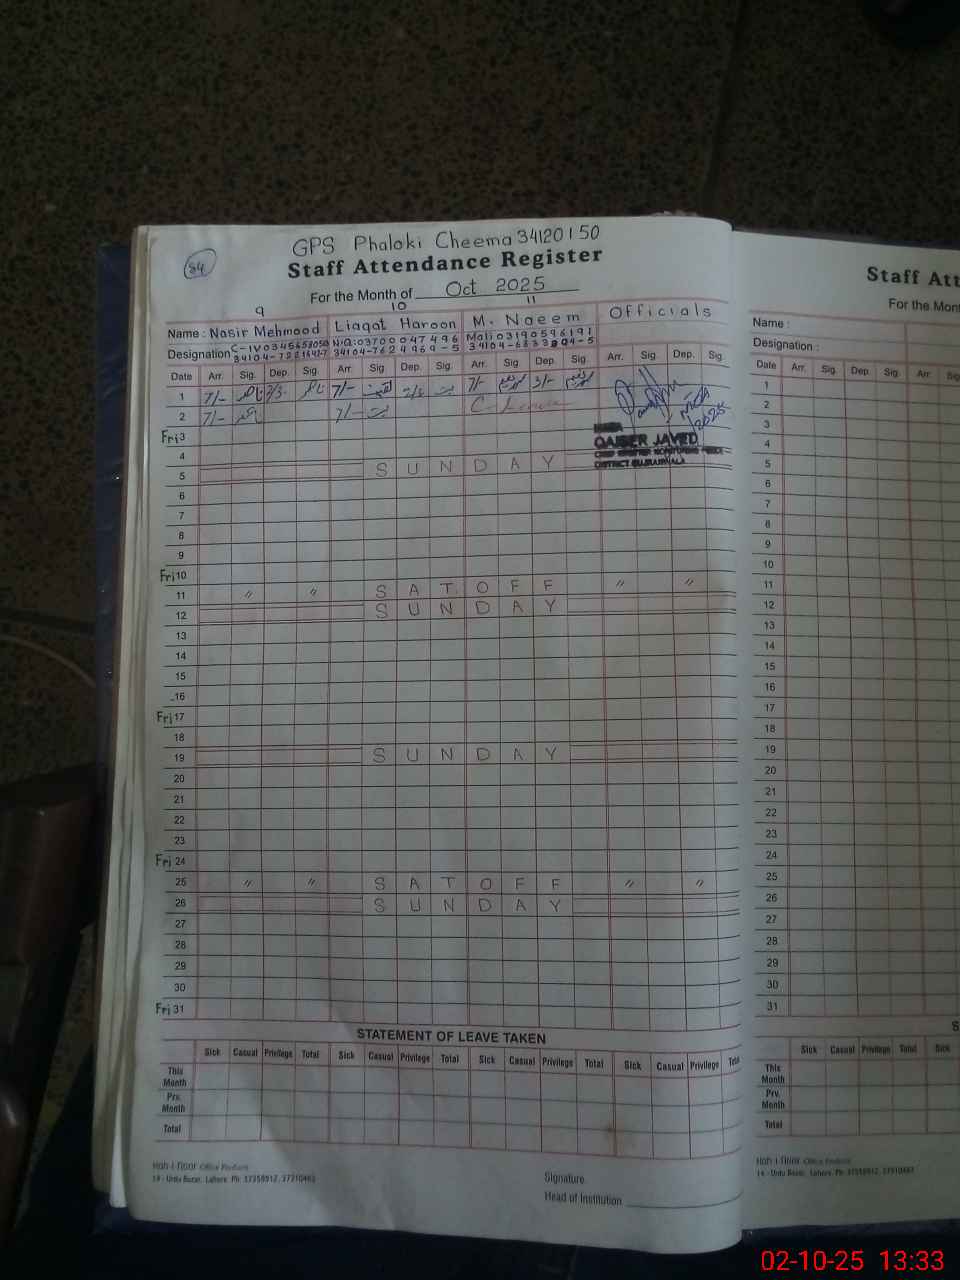 84
GPS Phaloki Cheema 34120150
Staff Attendance Register
For the Month of Oct 2025
9 10 11
Name : Nasir Mehmood Liaqat Haroon M. Naeem Officials
Designation C-IV N.Q: 03700047496 Mali 03190596191
34104-7624969-5
Date Arr. Sig. Dep. Sig. Arr. Sig. Dep. Sig. Arr. Sig. Dep. Sig. Arr. Sig. Dep. Sig.
1 7/- ناصر ناصر 7/- 7/- 3/-
2 7/- ناصر 7/- C-Leave
2025
Fri 3
QAISER JAVED
4
DISTRICT GUJRANWALA
5 SUNDAY
6
7
8
9
Fri 10
11 〃 〃 SAT OFF 〃 〃
12 SUNDAY
13
14
15
16
Fri 17
18
19 SUNDAY
20
21
22
23
Fri 24
25 〃 〃 SAT OFF 〃 〃
26 SUNDAY
27
28
29
30
Fri 31
STATEMENT OF LEAVE TAKEN
Sick Casual Privilege Total Sick Casual Privilege Total Sick Casual Privilege Total Sick Casual Privilege
This Month
Prv. Month
Total
Roh-i-Noor Office Products
14 - Urdu Bazar, Lahore. Ph: 37358912, 37310463
Signature.
Head of Institution
Staff Att
For the Mont
Name :
Designation :
Date Arr. Sig. Dep. Sig. Arr.
1
2
3
4
5
6
7
8
9
10
11
12
13
14
15
16
17
18
19
20
21
22
23
24
25
26
27
28
29
30
31
S
Sick Casual Privilege Total Sick
This Month
Prv. Month
Total
14 - Urdu Bazar, Lahore. Ph: 37358912, 37310463
02-10-25 13:33